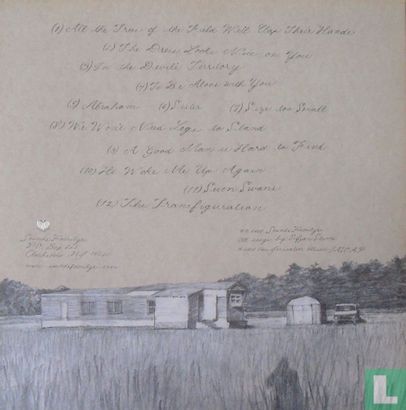 (1) All the Trees of the Field Will Clap Their Hands
(2) The Dress Looks Nice on You
(3) In the Devil's Territory
(4) To Be Alone with You
(5) Abraham (6) Sister (7) Size too Small
(8) We Won't Need Legs to Stand
(9) A Good Man is Hard to Find
(10) He Woke Me Up Again
(11) Seven Swans
(12) The Transfiguration
Sounds Familyre
All songs by Sufjan Stevens
L